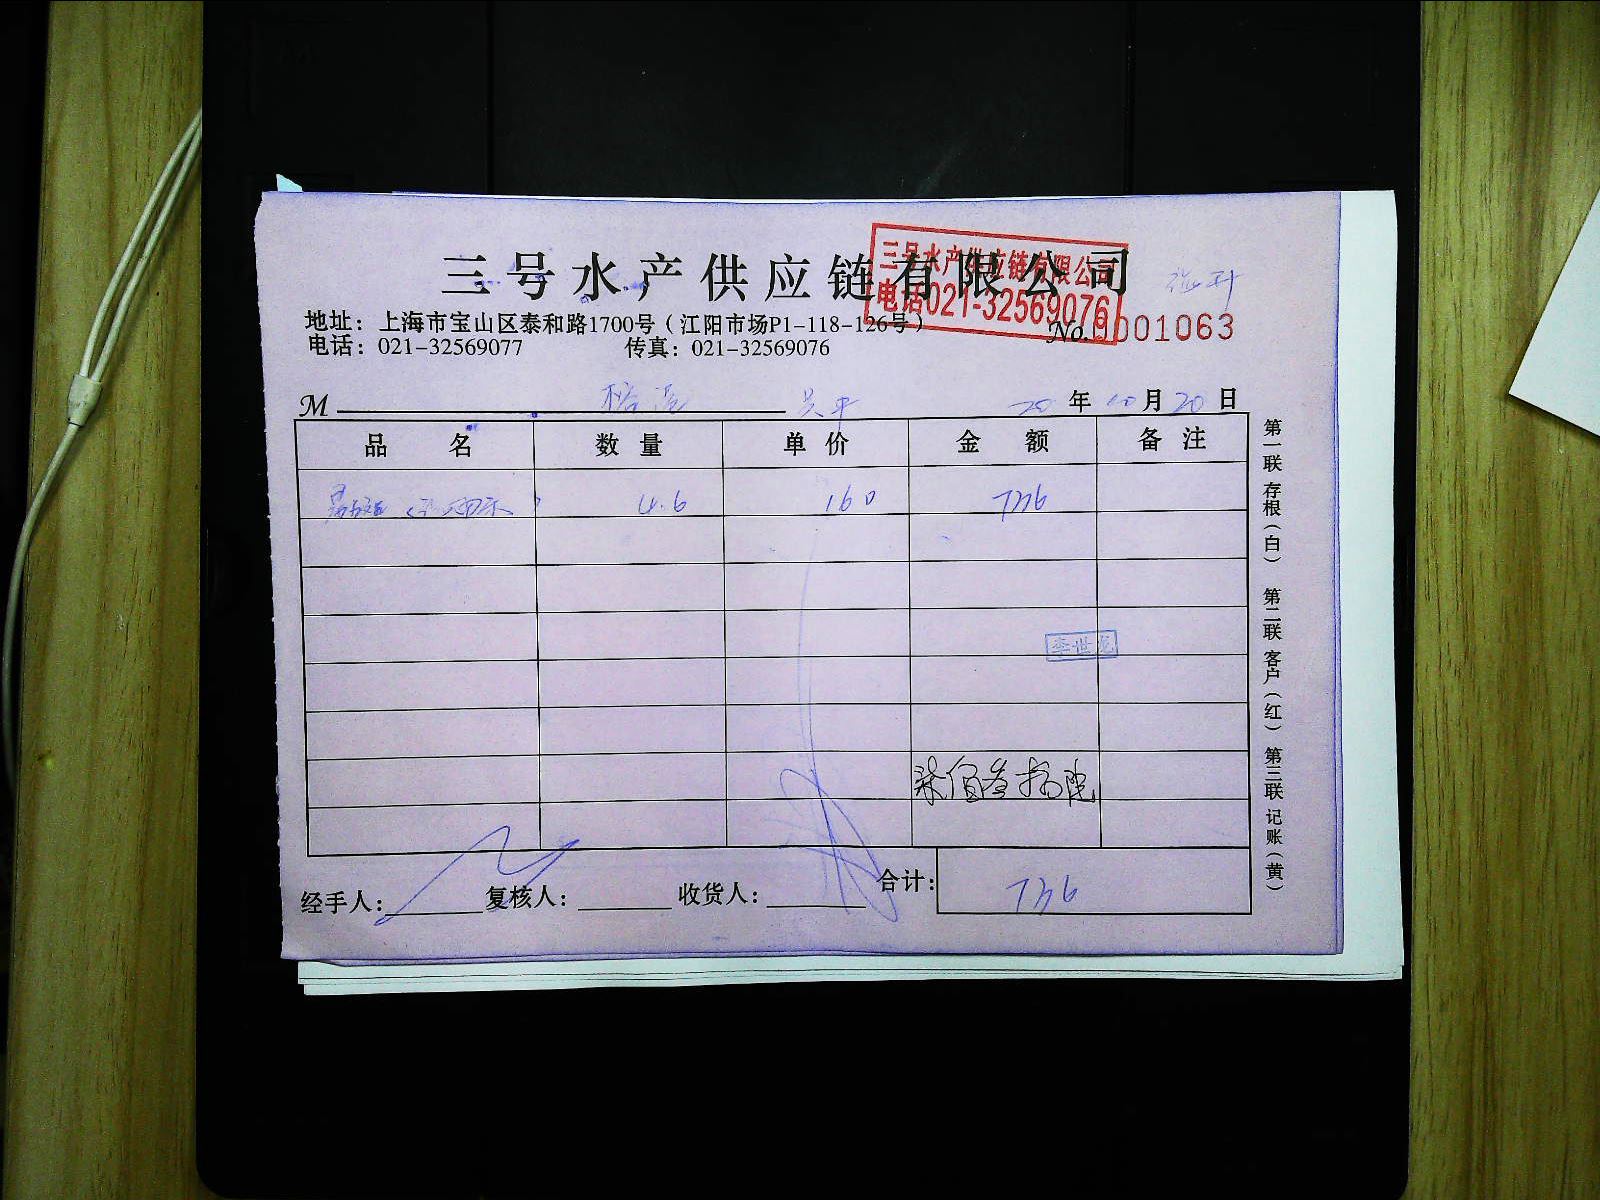 三号水产供应链有限公司
三号水产供应链有限公司
电话021-32569076
地址：上海市宝山区泰和路1700号（江阳市场P1-118-126号）
电话：021-32569077 传真：021-32569076
No. 0001063
M 20年10月20日
品名 数量 单价 金额 备注
4.6 160 736
李世龙
合计：736
经手人： 复核人： 收货人：
第一联 存根（白） 第二联 客户（红） 第三联 记账（黄）